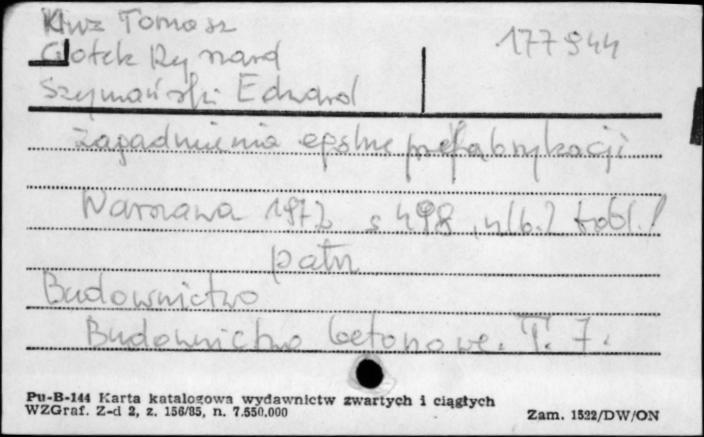 Kluz Tomasz
177944
Ciołek Ryszard
Szymański Edward
Zagadnienia ogólne prefabrykacji
Warszawa 1972 s 498, nlb. 2 tabl.
patr
Budownictwo
Budownictwo betonowe. T. 7.
Pu-B-144 Karta katalogowa wydawnictw zwartych i ciągłych
WZGraf. Z-d 2, z. 156/85, n. 7.550.000
Zam. 1522/DW/ON